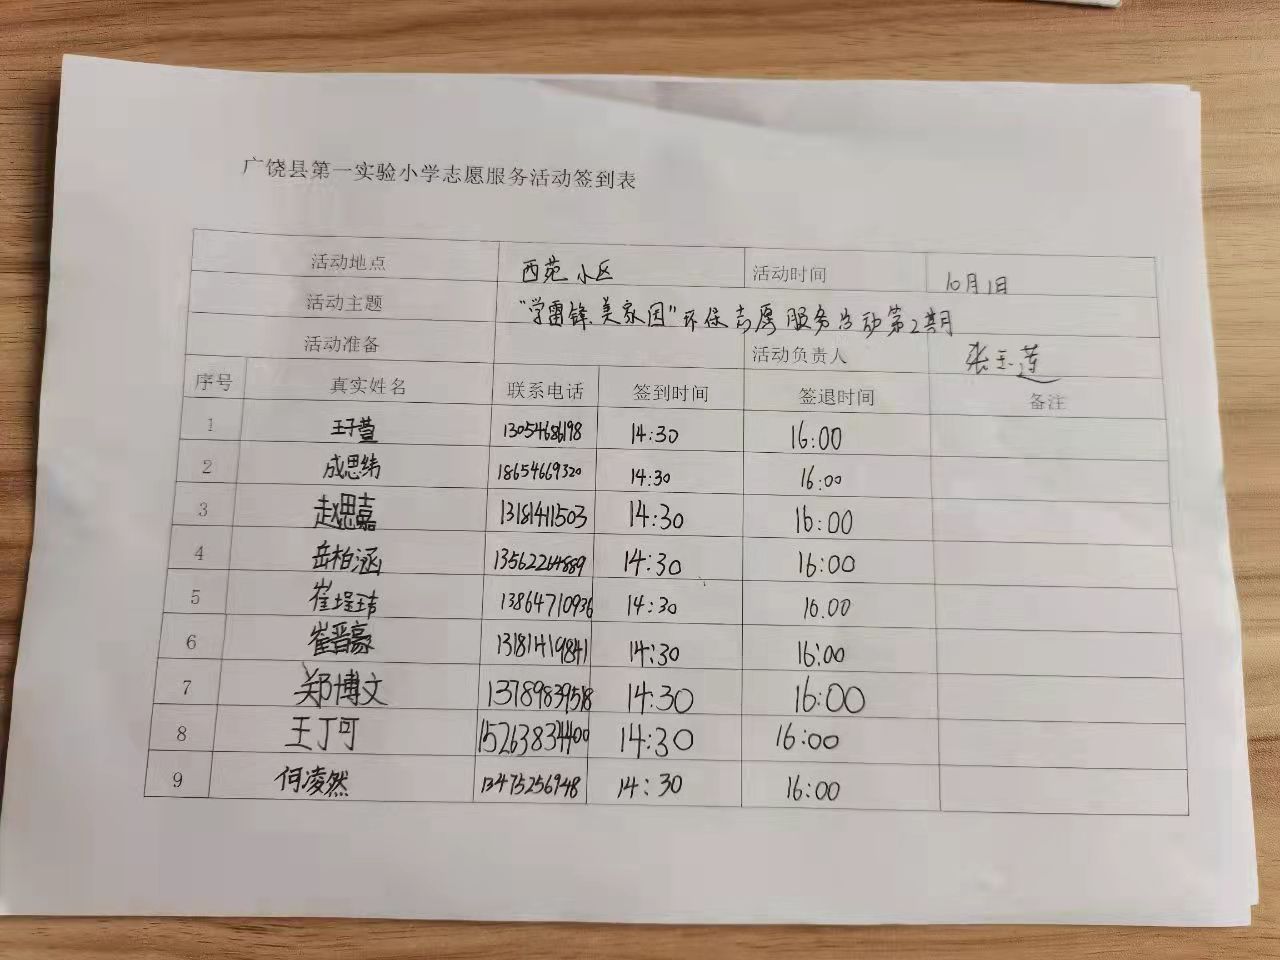 广饶县第一实验小学志愿服务活动签到表
活动地点 西苑小区 活动时间 10月1日
活动主题 “学雷锋、美家园”环保志愿服务活动第2期
活动准备 活动负责人 张玉莲
序号 真实姓名 联系电话 签到时间 签退时间 备注
1 王子萱 13054686198 14:30 16:00
2 成思纬 18654669320 14:30 16:00
3 赵思嘉 13181411503 14:30 16:00
4 岳柏涵 13562264889 14:30 16:00
5 崔埕玮 13864710936 14:30 16.00
6 崔晋豪 13181419841 14:30 16:00
7 郑博文 13789839518 14:30 16:00
8 王丁可 15263834400 14:30 16:00
9 何凌然 13475256948 14:30 16:00